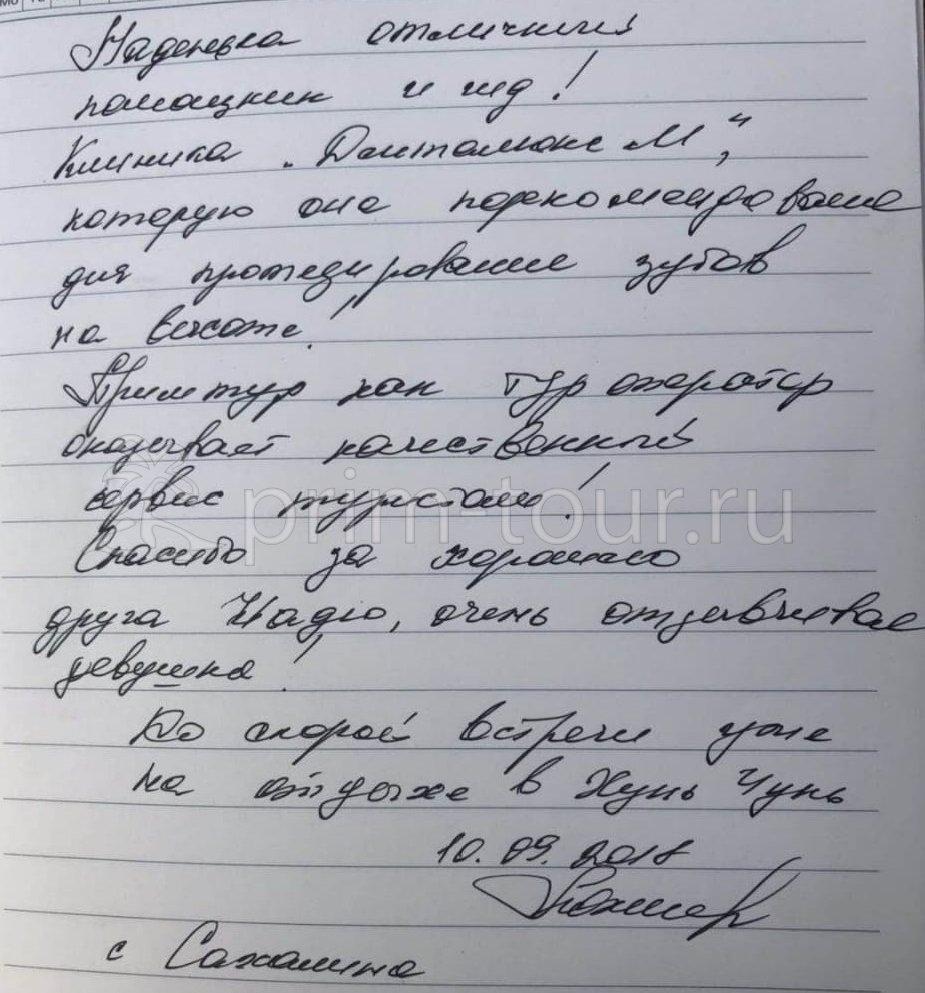 Наденька отличный
помощник и гид!
Клиника "Денталюкс М",
которую она порекомендовала
для протезирование зубов
на высоте!
Примтур как туроператор
оказывает качественный
сервис туристам!
prim-tour.ru
Спасибо за хорошего
друга Надю, очень отзывчивая
девушка!
До скорой встречи уже
на отдыхе в Хунь Чунь
10.09.2018
с Сахалина